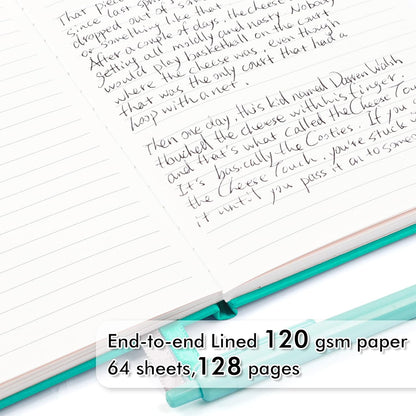 Since last spr
dropped out of s
or something like that.
After a couple of days, the cheese s
getting all moldy and nasty. Nobody
would play basketball on the court
where the cheese was, even though
that was the only court that had a
loop with a net.
Then one day, this kid named Darren Walsh
touched the cheese with his finger,
and that's what called the Cheese Touc
It's basically the Cooties. If you
the Cheese Touch, you're stuck w
it until you pass it on to some
End-to-end Lined 120 gsm paper
64 sheets,128 pages